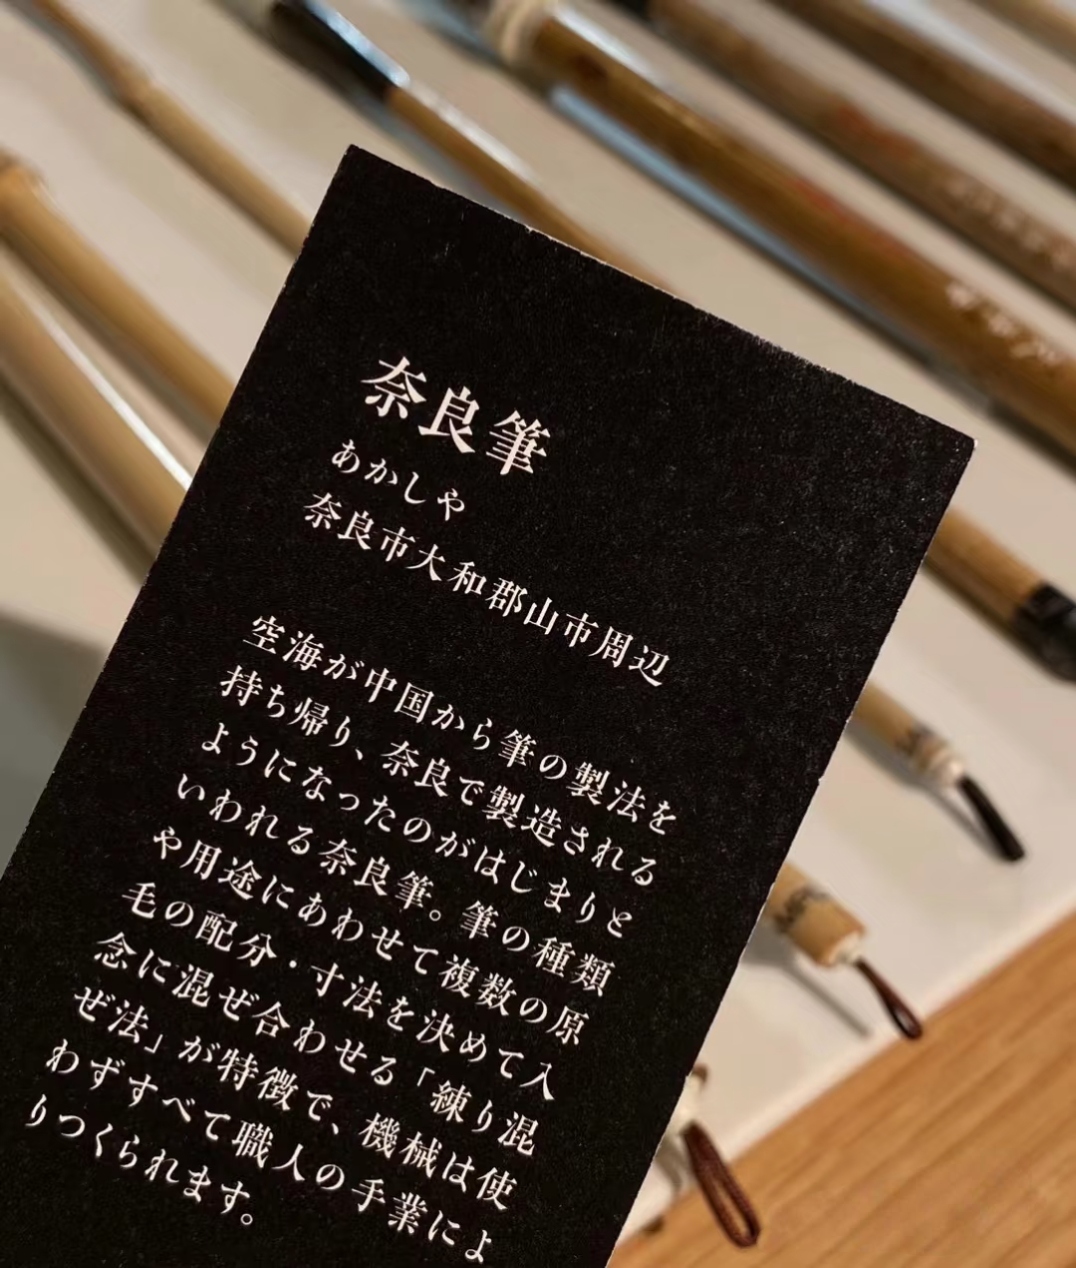 奈良筆
あかしや
奈良市大和郡山市周辺
空海が中国から筆の製法を
持ち帰り、奈良で製造される
ようになったのがはじまりと
いわれる奈良筆。筆の種類
や用途にあわせて複数の原
毛の配分・寸法を決めて入
念に混ぜ合わせる「練り混
ぜ法」が特徴で、機械は使
わずすべて職人の手業によ
りつくられます。